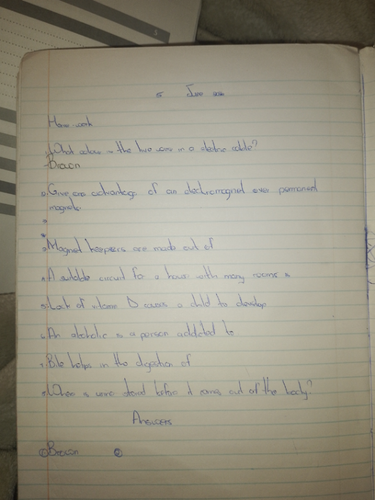 5 June
Home work
What colour is the live wire in a electric cable?
Brown
Give one advantage of an electromagnet over permanent
magnets
Magnet keepers are made out of
A suitable circuit for a house with many rooms is
Lack of vitamin D causes a child to develop
An alcoholic is a person addicted to
Bile helps in the digestion of
Where is urine stored before it comes out of the body?
Answers
① Brown ②